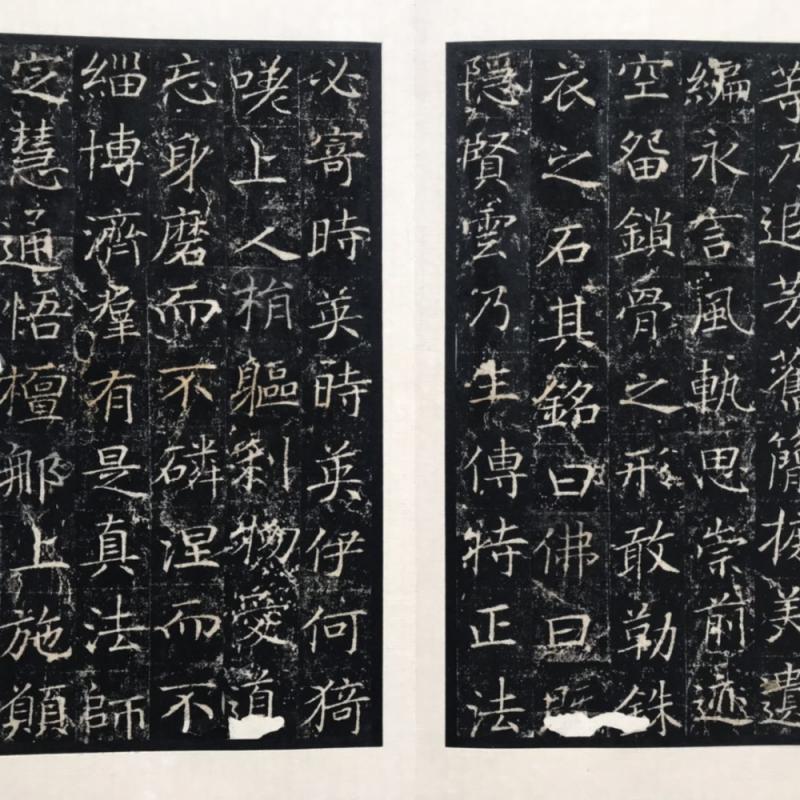 追芳舊簡摭美遺
編永言風軌思崇前迹
空留鎖骨之形敢勒銖
衣之石其銘曰佛曰
隱賢雲乃生傳持正法
必寄時英時英伊何猗
嗟上人捐軀利物愛道
忘身磨而不磷涅而不
緇博濟羣有是真法師
定慧通悟檀那上施願